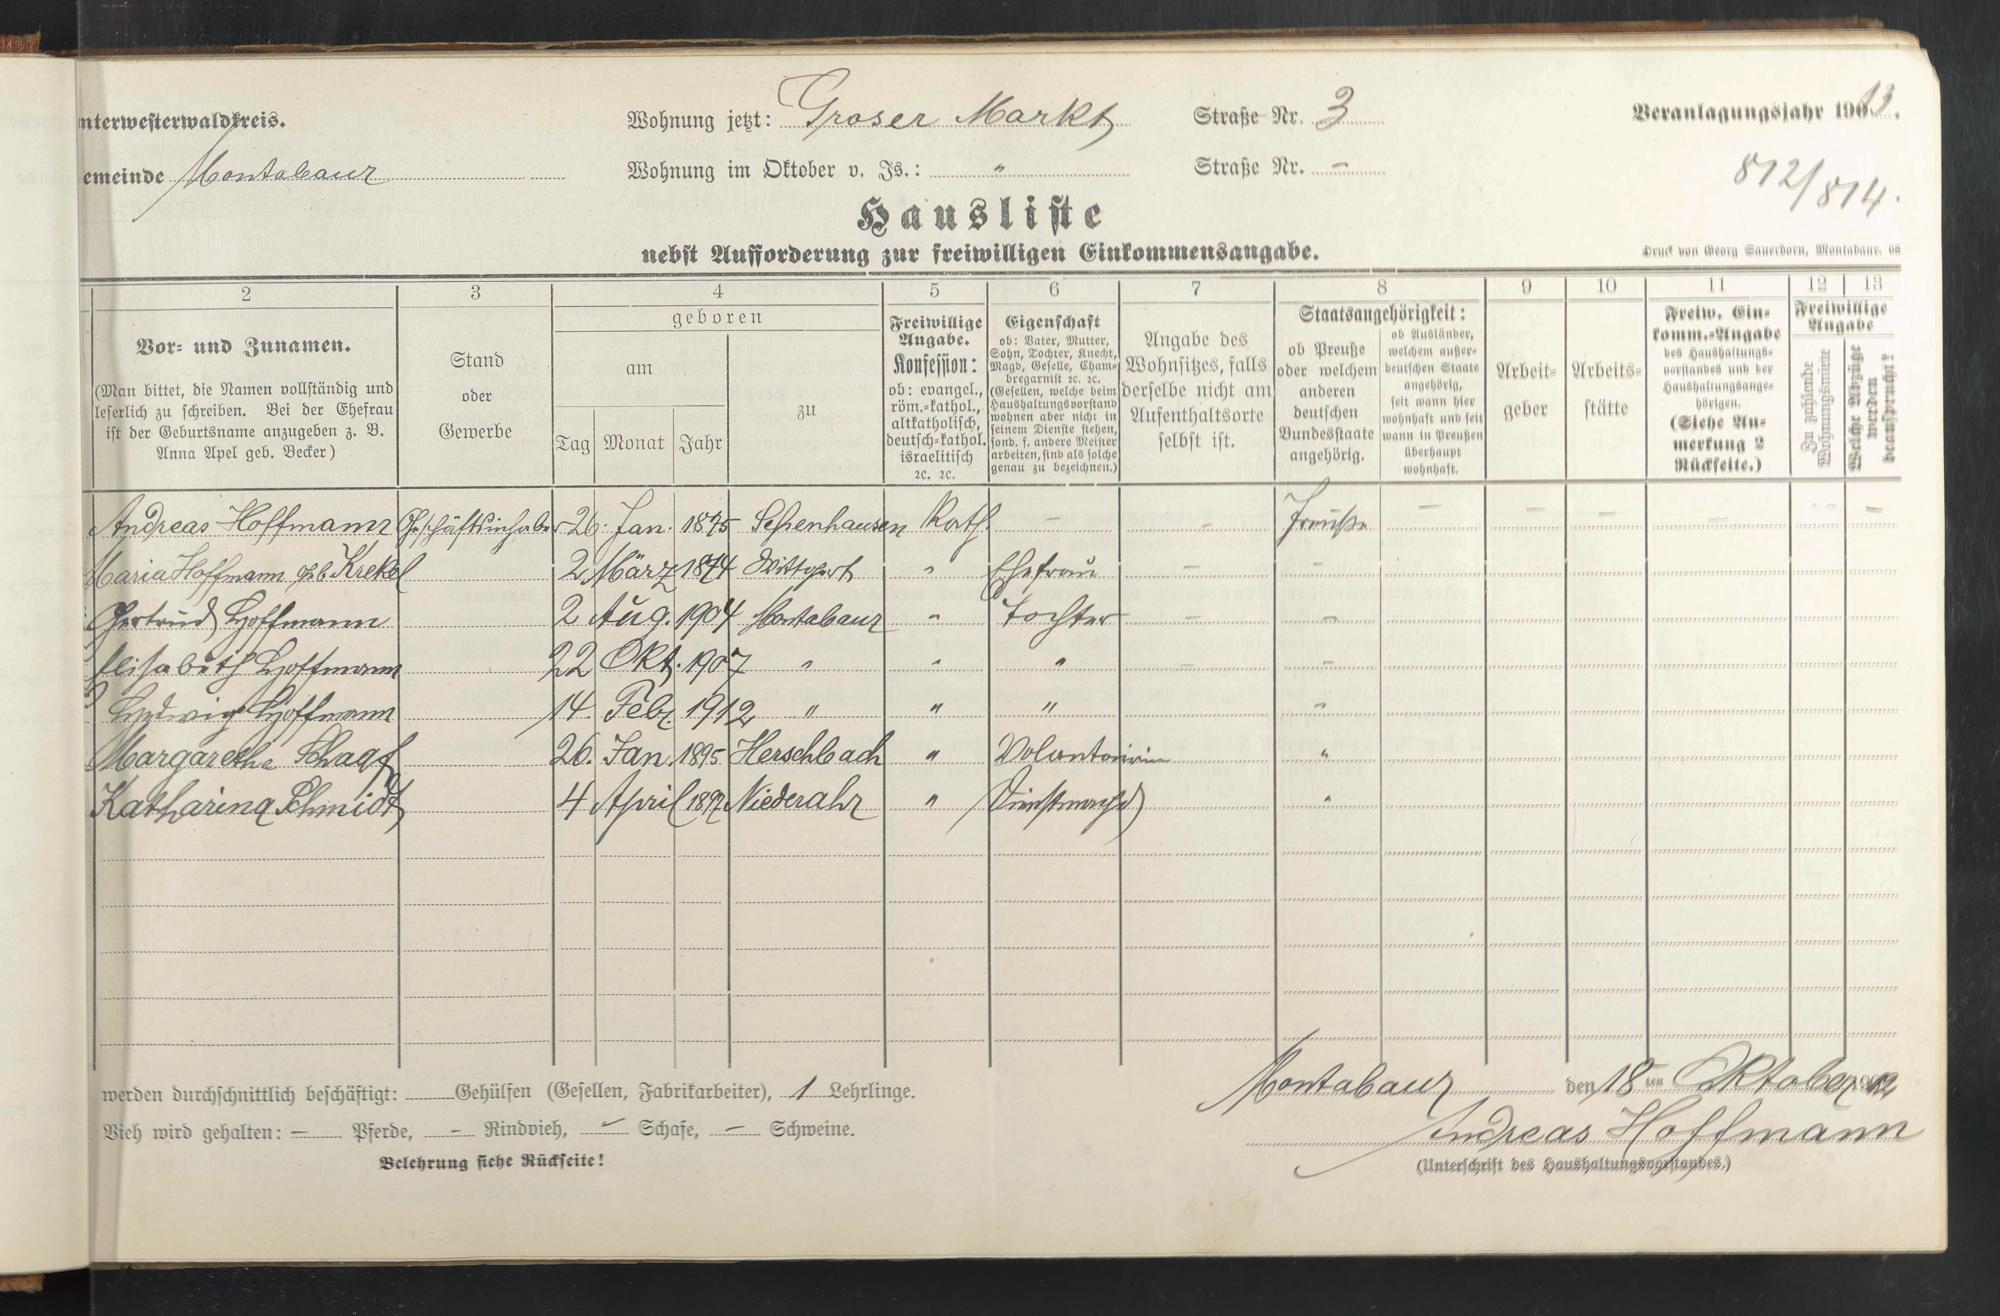 nterwesterwaldkreis. Wohnung jetzt: Groser Markt Straße Nr. 3 Veranlagungsjahr 1913.
emeinde Montabaur Wohnung im Oktober v. Js.: " Straße Nr. –
812/814.
Hausliste
nebst Aufforderung zur freiwilligen Einkommensangabe.
Druck von Georg Sauerborn, Montabaur. 08
2 3 4 5 6 7 8 9 10 11 12 13
Vor- und Zunamen.
(Man bittet, die Namen vollständig und
leserlich zu schreiben. Bei der Ehefrau
ist der Geburtsname anzugeben z. B.
Anna Apel geb. Becker)
Stand
oder
Gewerbe
geboren
am
Tag Monat Jahr
zu
Freiwillige
Angabe.
Konfession:
ob: evangel.,
röm.-kathol.,
altkatholisch,
deutsch-kathol.
israelitisch
2c. 2c.
Eigenschaft
ob: Vater, Mutter,
Sohn, Tochter, Knecht,
Magd, Geselle, Cham-
bregarnist 2c. 2c.
(Gesellen, welche beim
Haushaltungsvorstand
wohnen aber nicht in
seinem Dienste stehen,
sond. f. andere Meister
arbeiten, sind als solche
genau zu bezeichnen.)
Angabe des
Wohnsitzes, falls
derselbe nicht am
Aufenthaltsorte
selbst ist.
Staatsangehörigkeit:
ob Preuße
oder welchem
anderen
deutschen
Bundesstaate
angehörig.
ob Ausländer,
welchem außer-
deutschen Staate
angehörig,
seit wann hier
wohnhaft und seit
wann in Preußen
überhaupt
wohnhaft.
Arbeit-
geber
Arbeits-
stätte
Freiw. Ein-
komm.-Angabe
des Haushaltungs-
vorstandes und der
Haushaltungsange-
hörigen.
(Siehe An-
merkung 2
Rückseite.)
Freiwillige
Angabe
Zu zahlende
Wohnungsmiete
Welche Abzüge
werden
beansprucht?
Andreas Hoffmann Geschäftsinhaber 26. Jan. 1875 Kath. – – Preuße – – – – – –
Maria Hoffmann geb. Krekel 2 März 1874 Wittgert " Ehefrau – –
Gertrud Hoffmann 2 Aug. 1904 Montabaur " Tochter – –
Elisabeth Hoffmann 22 Okt. 1907 " " " – –
Hedwig Hoffmann 14. Feb. 1912 " " " "
Margarethe 26. Jan. 1895 Herschbach " Volontärin "
Katharina Schmidt 4 April Niederahr " Dienstmagd "
werden durchschnittlich beschäftigt: Gehülfen (Gesellen, Fabrikarbeiter), 1 Lehrlinge.
Vieh wird gehalten: – Pferde, – Rindvieh, – Schafe, – Schweine.
Belehrung siehe Rückseite!
Montabaur den 18ten Oktober 1912
Andreas Hoffmann
(Unterschrift des Haushaltungsvorstandes.)